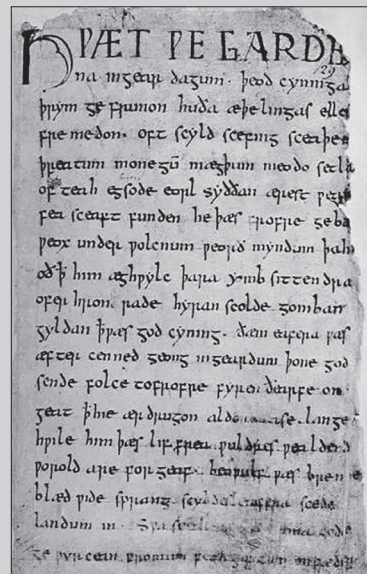 HǷÆT ǷE GARDE
129
na ingear dagum. þeod cyninga
þrym ge frunon huða æþelingas elle
fre medon. oft scyld scefing sceaþe
þreatum monegū mægþum meodo setla
of teah egsode eorl syððan ærest ƿear
fea sceaft funden he þæs frofre geba
ƿeox under ƿolcnum ƿeorð myndum þah
oð ꝥ him æghƿylc þara ymb sittendra
ofer hron rade hyran scolde gomban
gyldan ꝥ ƿæs god cyning. ðæm eafera ƿæs
æfter cenned geong ingeardum þone god
sende folce tofrofre fyren ðearfe on
geat ꝥ hie ær drugon aldor ase. lange
hƿile him þæs liffrea ƿuldres ƿealdend
ƿorold are forgeaf. beoƿulf ƿæs breme
blæd ƿide sprang scyldes eafera scede
landum in. Sƿa ma gode
ge ƿyrcean fromum